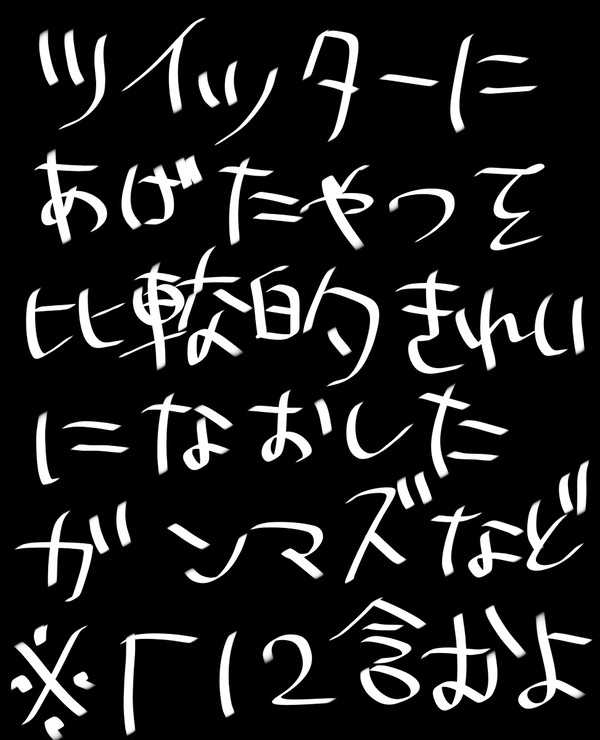 ツイッターに
あげたやつを
比較的きれい
になおした
ガンマズなど
※R12含むよ